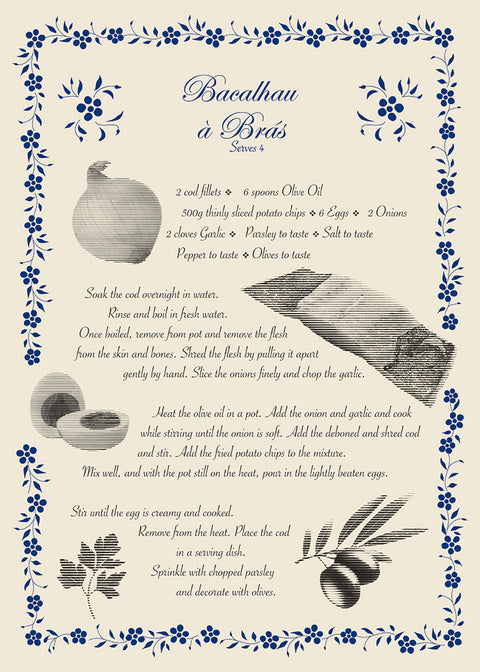 Bacalhau
à Brás
Serves 4
2 cod fillets ❖ 6 spoons Olive Oil
500g thinly sliced potato chips ❖ 6 Eggs ❖ 2 Onions
2 cloves Garlic ❖ Parsley to taste ❖ Salt to taste
Pepper to taste ❖ Olives to taste
Soak the cod overnight in water.
Rinse and boil in fresh water.
Once boiled, remove from pot and remove the flesh
from the skin and bones. Shred the flesh by pulling it apart
gently by hand. Slice the onions finely and chop the garlic.
Heat the olive oil in a pot. Add the onion and garlic and cook
while stirring until the onion is soft. Add the deboned and shred cod
and stir. Add the fried potato chips to the mixture.
Mix well, and with the pot still on the heat, pour in the lightly beaten eggs.
Stir until the egg is creamy and cooked.
Remove from the heat. Place the cod
in a serving dish.
Sprinkle with chopped parsley
and decorate with olives.